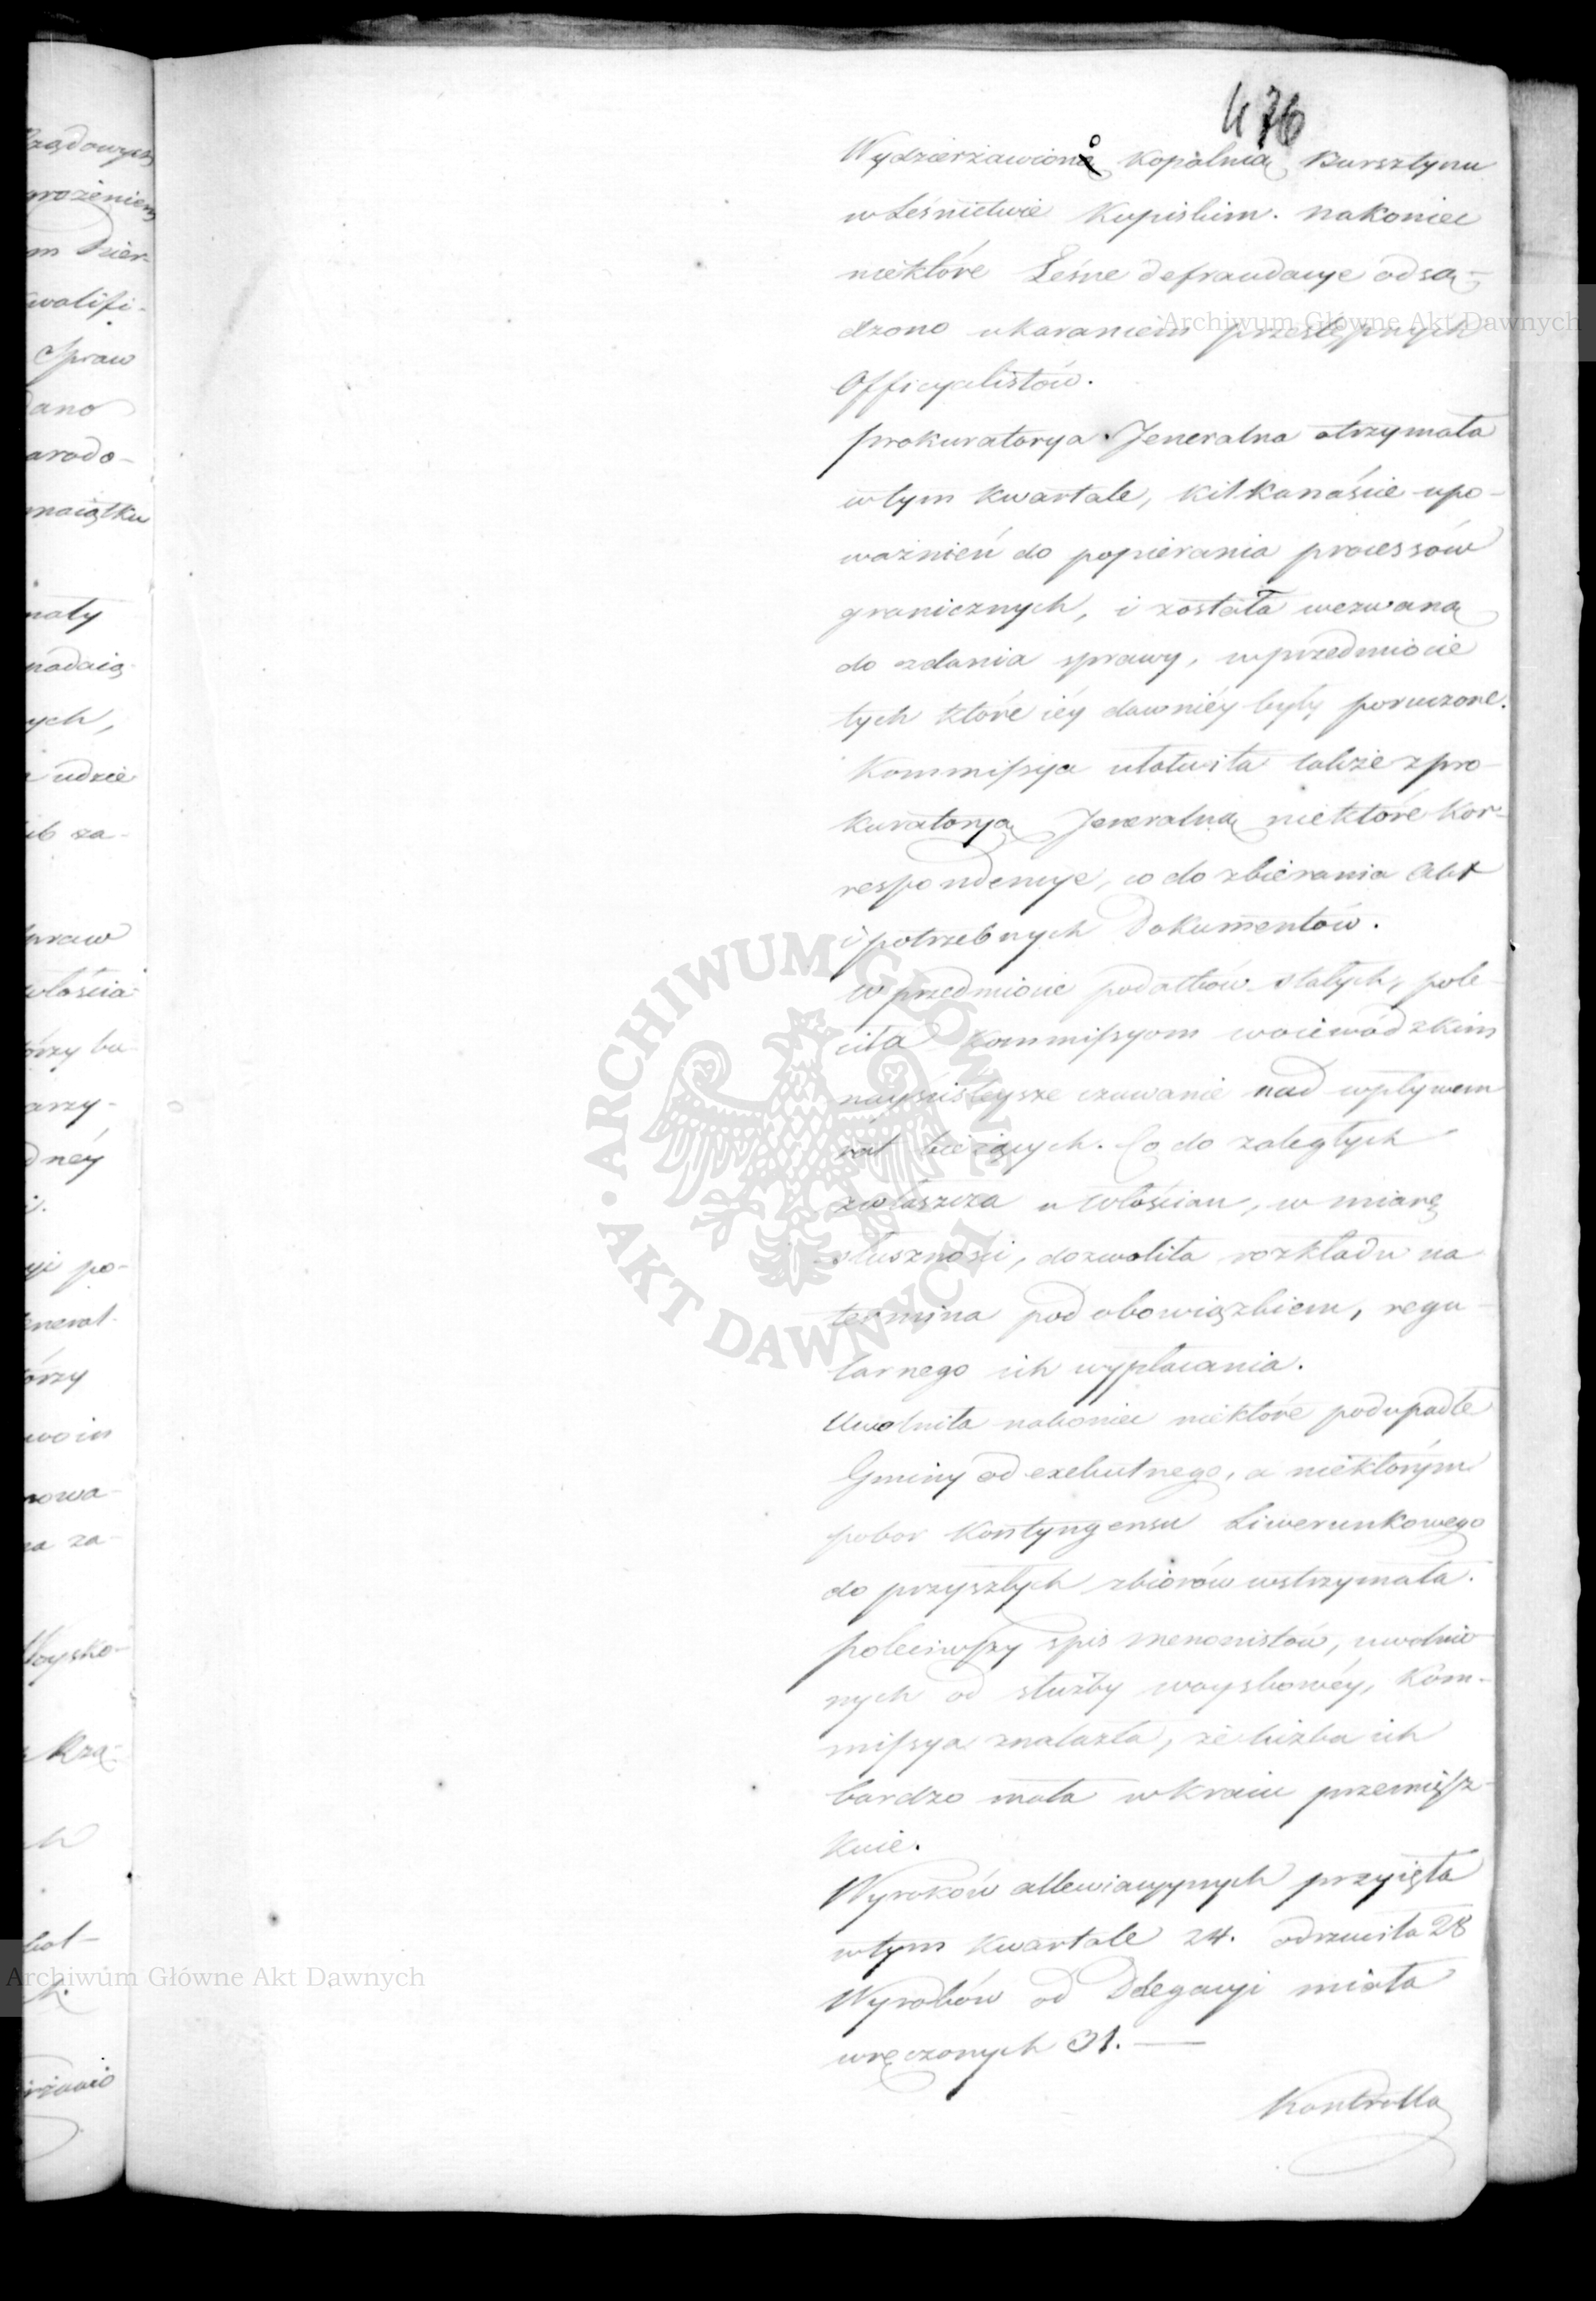 476
Wydzierżawiono Kopalnią Bursztynu
w Leśnictwie Kupiskim. nakoniec
niektóre Leśne defraudacye odsą-
dzono ukaraniem przestępnych
Officyalistów.
Prokuratorya Jeneralna otrzymała
w tym Kwartale, kilkanaście upo-
ważnień do popierania processów
granicznych, i została wezwaną
do zdania sprawy, w przedmiocie
tych które iéy dawniéy były poruczone.
Kommissya ułatwiła także z Pro-
kuratoryą Jeneralną niektóre Kor-
respondencye, co do zbierania Akt
i potrzebnych Dokumentów.
W przedmiocie podatków stałych, pole-
ciła Kommissyom woiewódzkim
nayściśleysze czuwanie nad wpływem
rat bieżących. Co do zaległych
zwłaszcza u Włościan, w miarę
słuszności, dozwoliła rozkładu na
termina pod obowiązkiem, regu-
larnego ich wypłacania.
Uwolniła nakoniec niektóre podupadłe
Gminy od exekutnego, a niektórym
pobor Kontyngensu Liwerunkowego
do przyszłych zbiorów wstrzymała.
Poleciwszy spis menonistów, uwolnio-
nych od służby woyskowéy, Kom-
missya znalazła, że liczba ich
bardzo mała w kraiu przemiesz-
kuie.
Wyroków allewiacyynych przyięła
w tym Kwartale 24. odrzuciła 28
Wyroków od Delegacyi miała
wręczonych 31. —
Kontrolla
Archiwum Główne Akt Dawnych
ARCHIWUM GŁÓWNE AKT DAWNYCH
Archiwum Główne Akt Dawnych